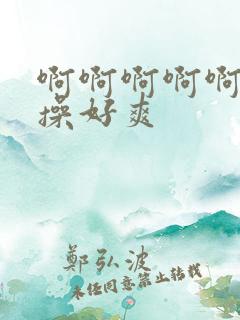 啊啊啊啊啊
操好爽
鄭弘波
未经同意禁止转载